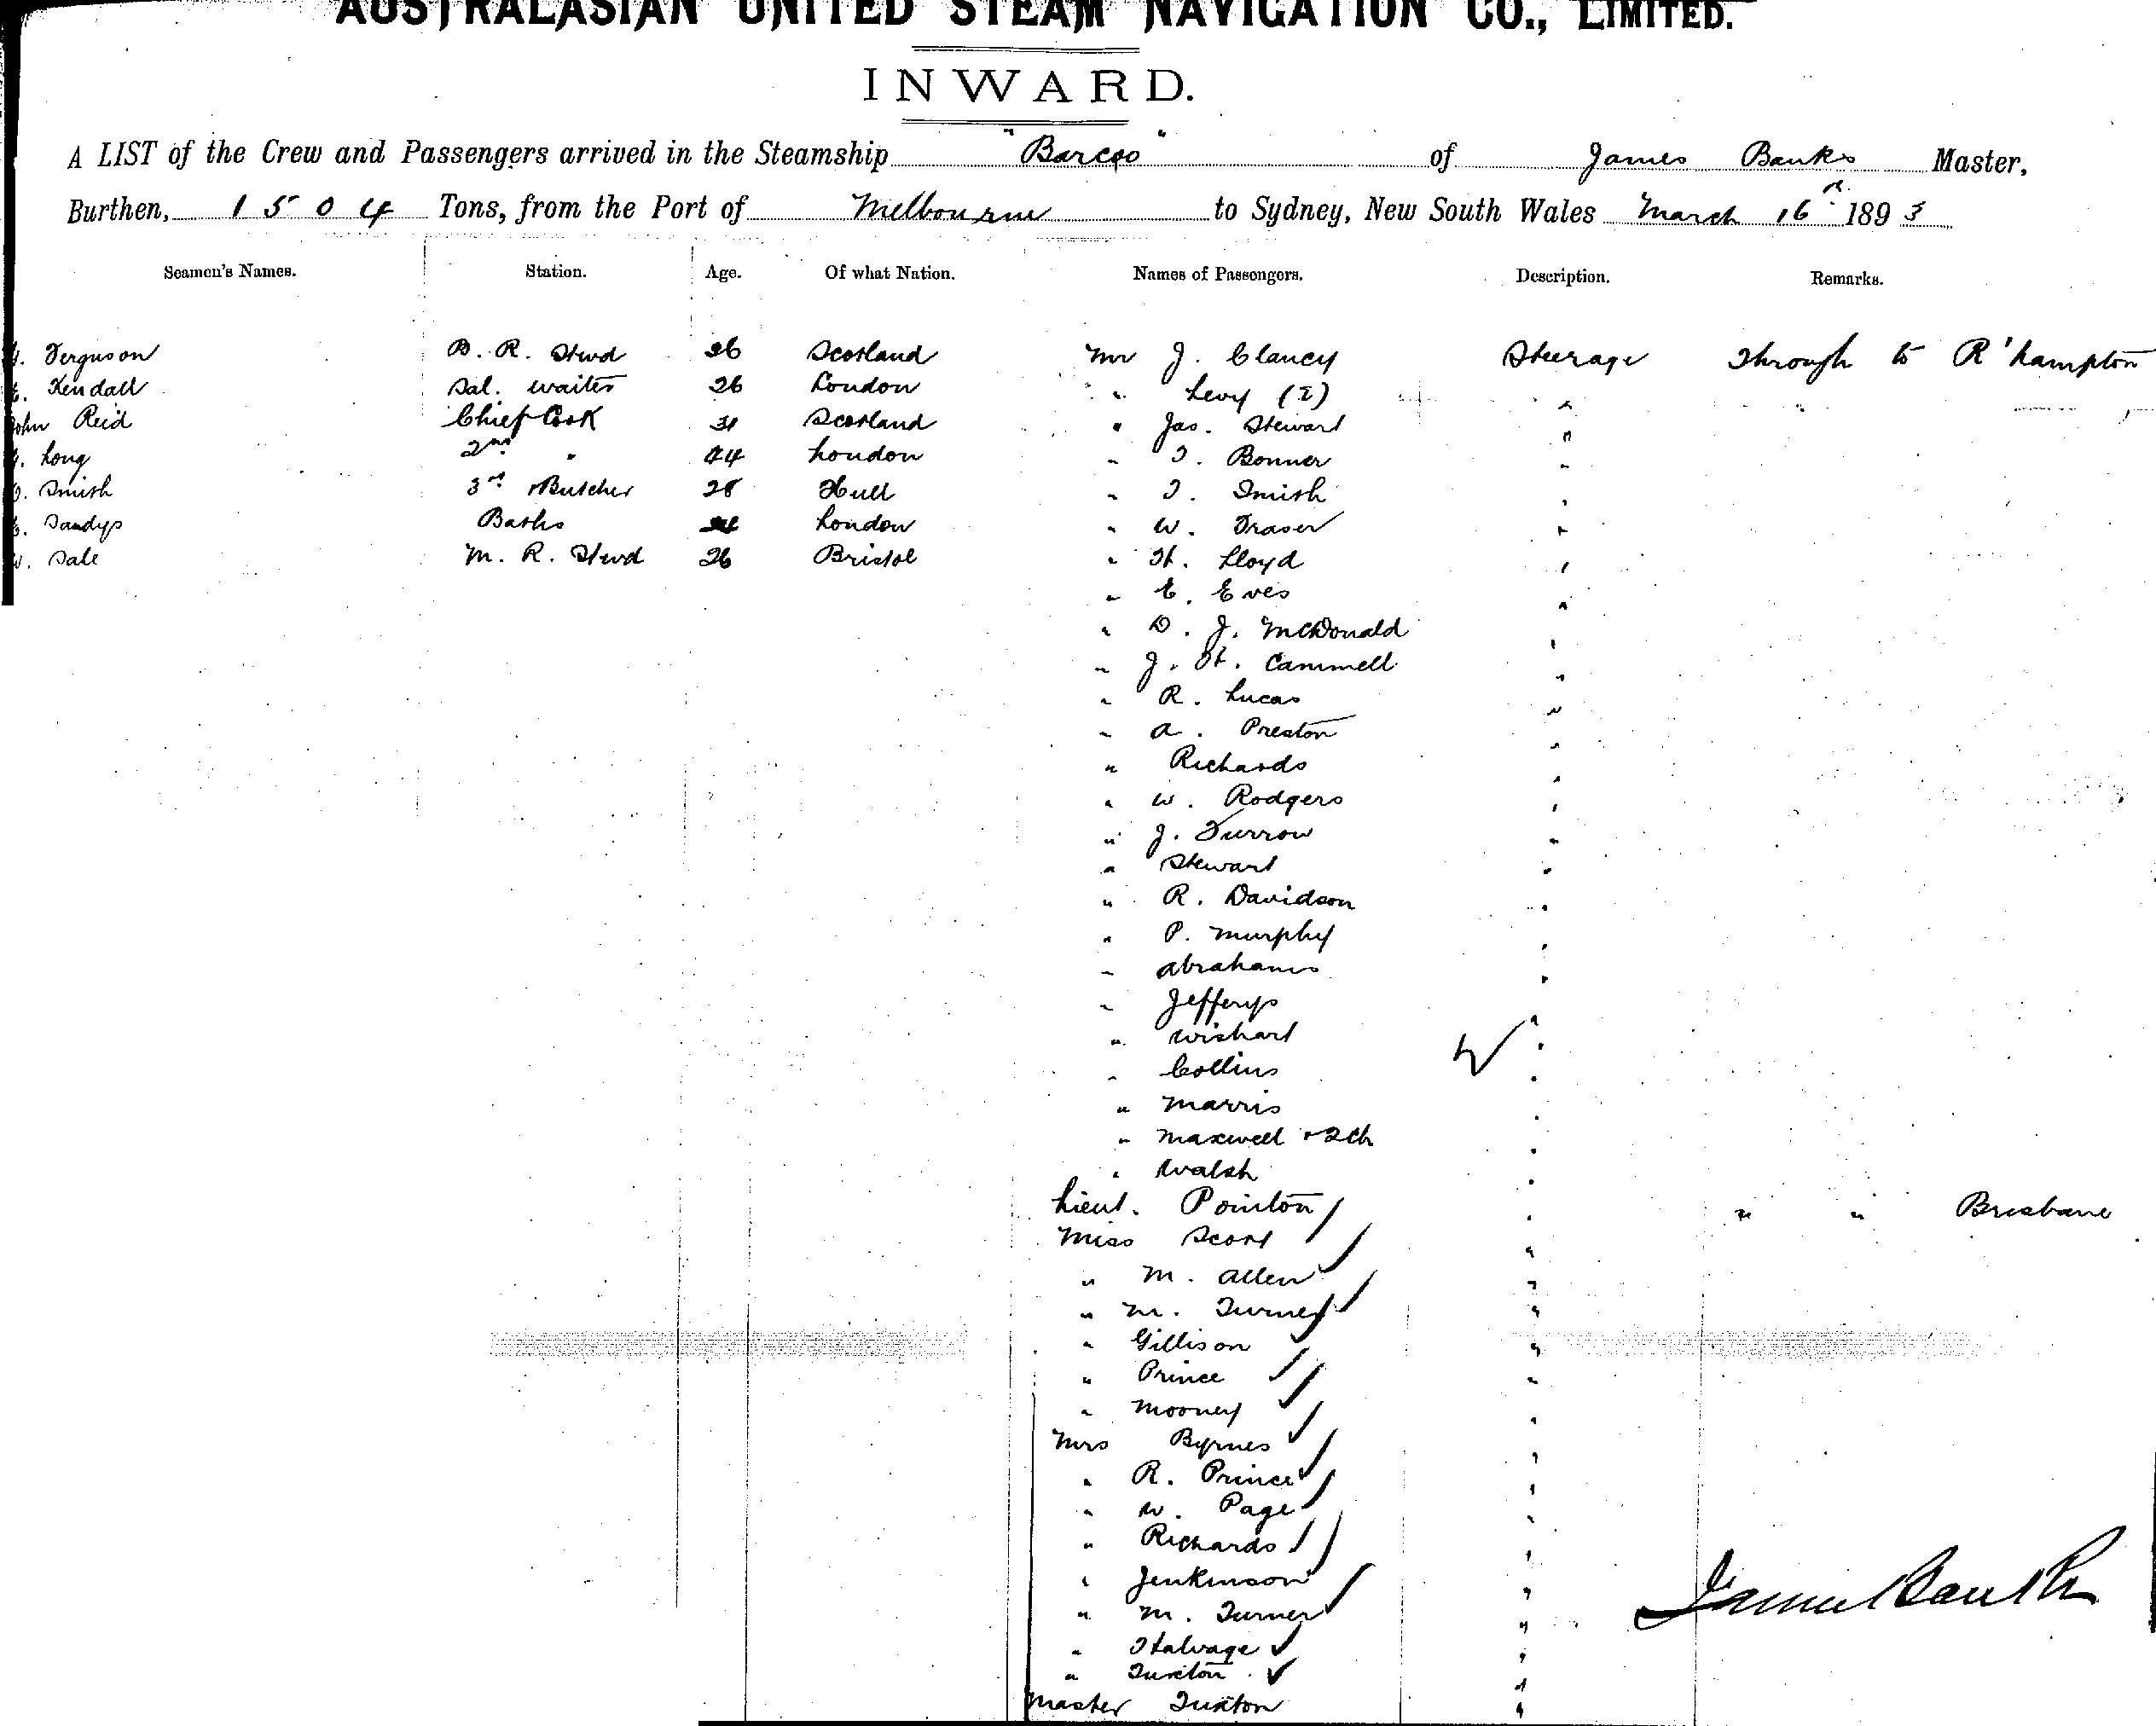 AUSTRALASIAN UNITED STEAM NAVIGATION CO., LIMITED.
INWARD.
A LIST of the Crew and Passengers arrived in the Steamship "Barcoo" of James Banks Master,
Burthen, 1504 Tons, from the Port of Melbourne to Sydney, New South Wales March 16th 1893
Seamen's Names. Station. Age. Of what Nation. Names of Passengers. Description. Remarks.
Ferguson B. R. Stwd 26 Scotland Mr J. Clancy Steerage Through to R'hampton
Kendall Sal. waiter 26 London " Levy (2) "
John Reid Chief Cook 31 Scotland " Jas. Stewart "
Long 2nd " 44 London " T. Bonner "
Smith 3rd & Butcher 28 Hull " T. Smith "
Sandys Baths London " W. Fraser "
W. Sale M. R. Stwd 26 Bristol " H. Lloyd "
" E. Eves "
" D. J. McDonald "
" J. H. Cammell "
" R. Lucas "
" A. Preston "
" Richards "
" W. Rodgers "
" J. Furrow "
" Stewart "
" R. Davidson "
" P. Murphy "
" Abrahams "
" Jefferys "
" Wishart "
" Collins "
" Marris "
" Maxwell & 2ch "
" Walsh "
Lieut. Pointon " " " Brisbane
Miss Scott "
" M. Allen "
" M. Turner "
" Gillison "
" Prince "
" Mooney "
Mrs Byrnes "
" R. Prince "
" W. Page "
" Richards "
" Jenkinson "
" M. Turner "
" Stalvage "
" Tuxton "
Master Tuxton "
James Banks